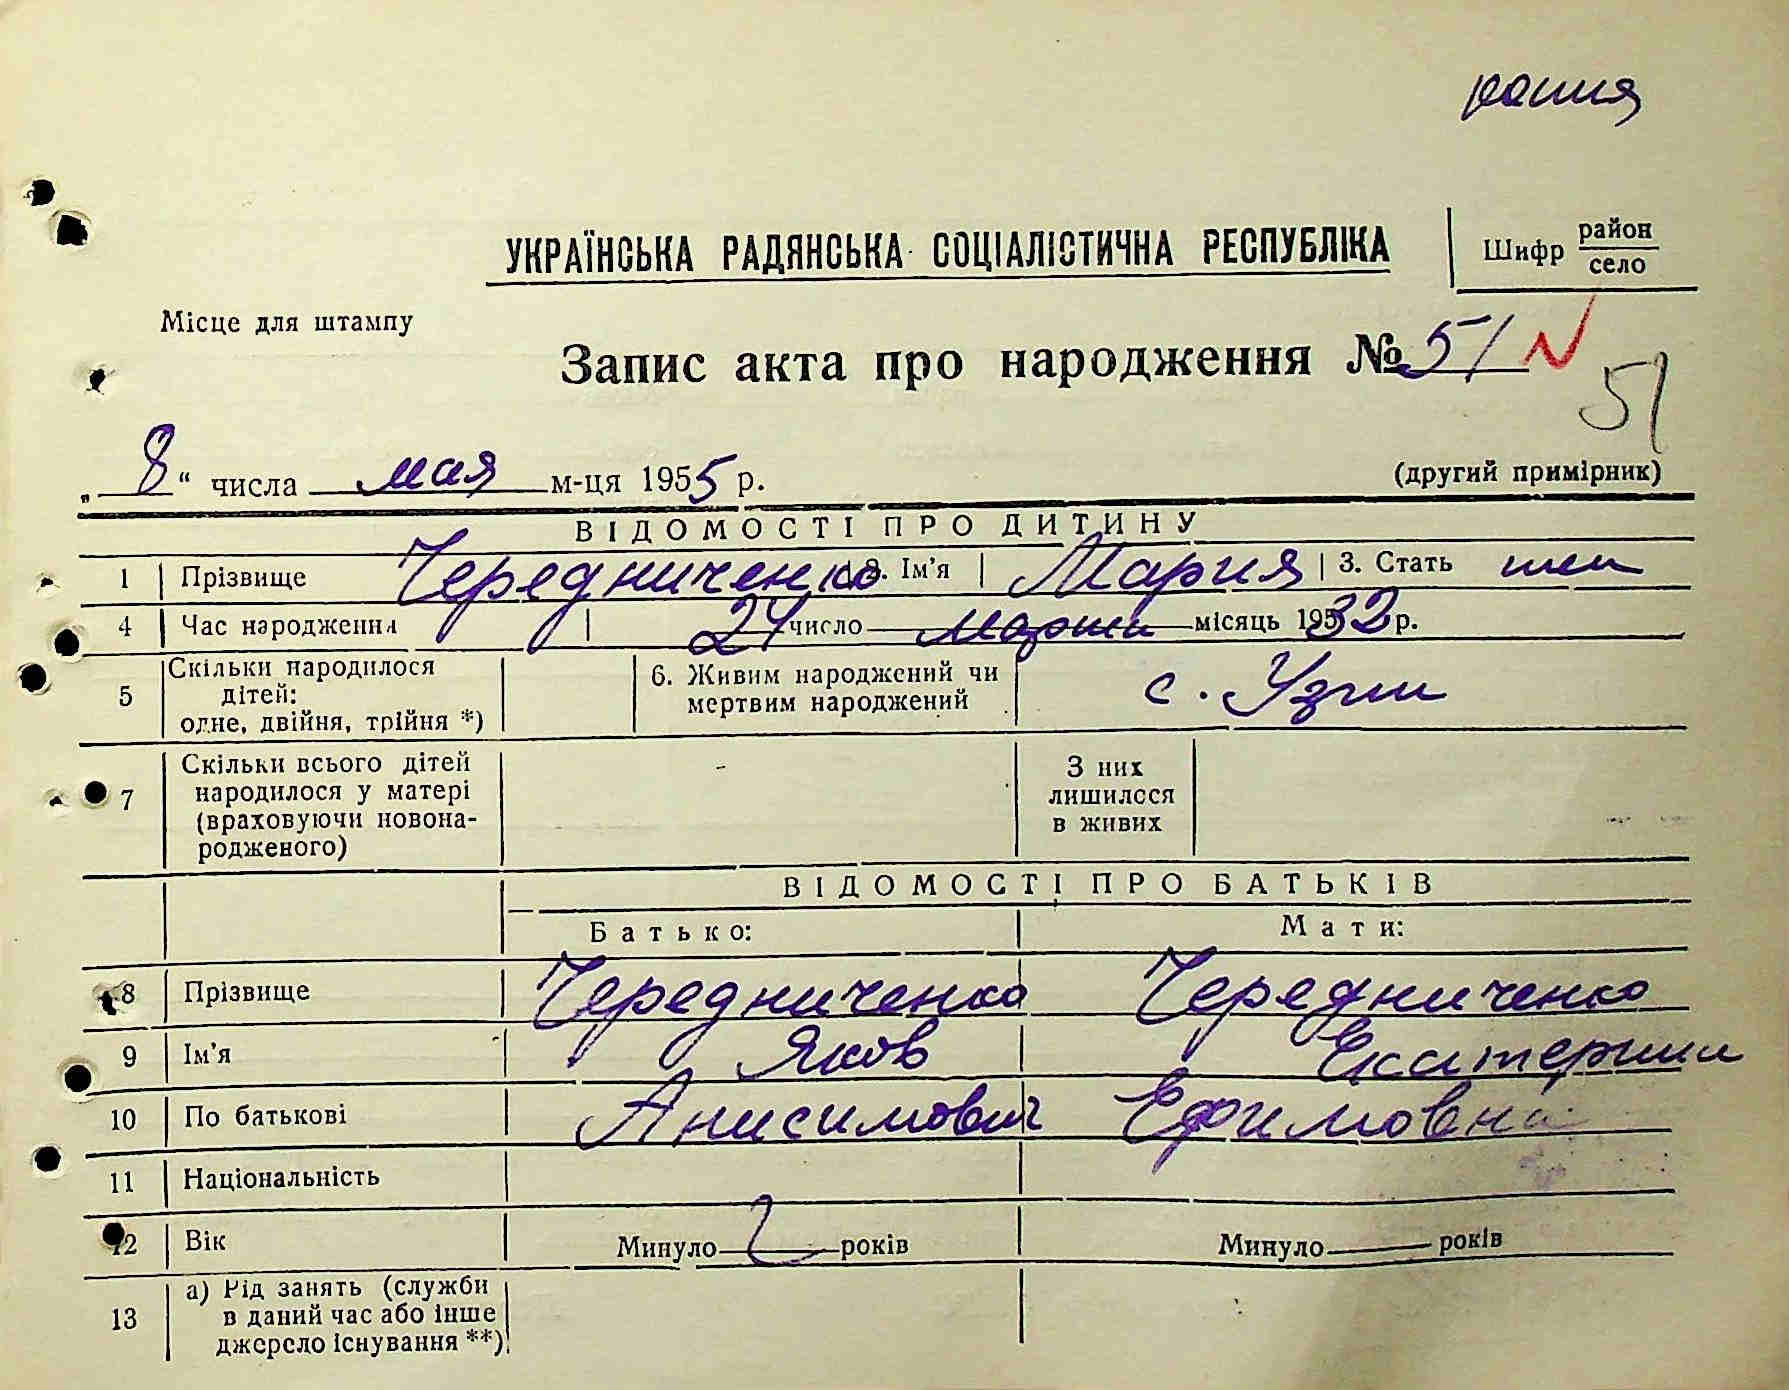 УКРАЇНСЬКА РАДЯНСЬКА СОЦІАЛІСТИЧНА РЕСПУБЛІКА
Шифр район
село
Місце для штампу
Запис акта про народження № 51
51
„ 8 “ числа мая м-ця 1955 р.
(другий примірник)
ВІДОМОСТІ ПРО ДИТИНУ
1 Прізвище Чередниченко 2. Ім'я Мария 3. Стать жен
4 Час народження 24 число марта місяць 1932 р.
5 Скільки народилося дітей: одне, двійня, трійня *) 6. Живим народжений чи мертвим народжений с. Узин
7 Скільки всього дітей народилося у матері (враховуючи новона-родженого) З них лишилося в живих
ВІДОМОСТІ ПРО БАТЬКІВ
Батько: Мати:
8 Прізвище Чередниченко Чередниченко
9 Ім'я Яков Екатерина
10 По батькові Анисимович Ефимовна
11 Національність
12 Вік Минуло років Минуло років
13 а) Рід занять (служби в даний час або інше джерело існування **)